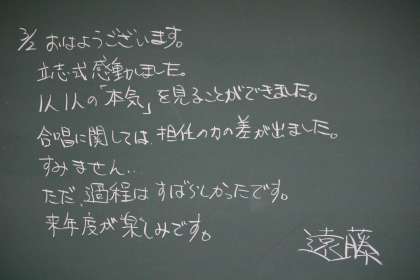 3/2 おはようございます。
立志式感動しました。
1人1人の「本気」を見ることができました。
合唱に関しては、担任の力の差が出ました。
すみません…
ただ、過程はすばらしかったです。
来年度が楽しみです。
遠藤